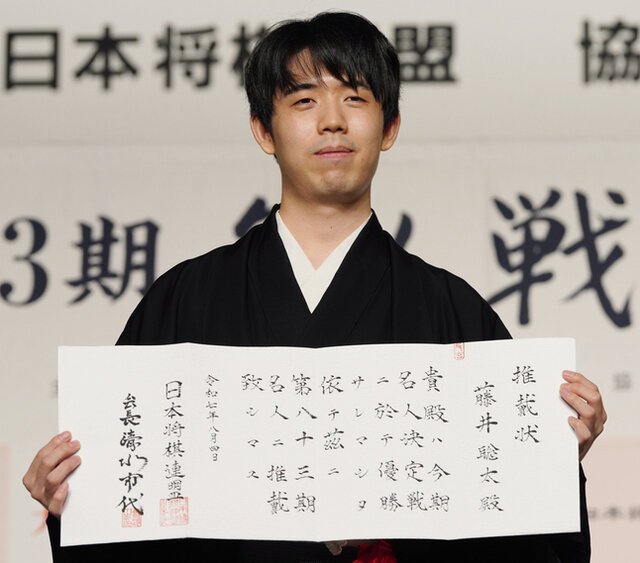 日本将 盟 協
3期 戦
推戴状
藤井聡太殿
貴殿ハ今期
名人決定戦
ニ於テ優勝
サレマシタ
依テ茲ニ
第八十三期
名人ニ推戴
致シマス
令和七年八月四日
日本将棋連盟
会長 清水市代